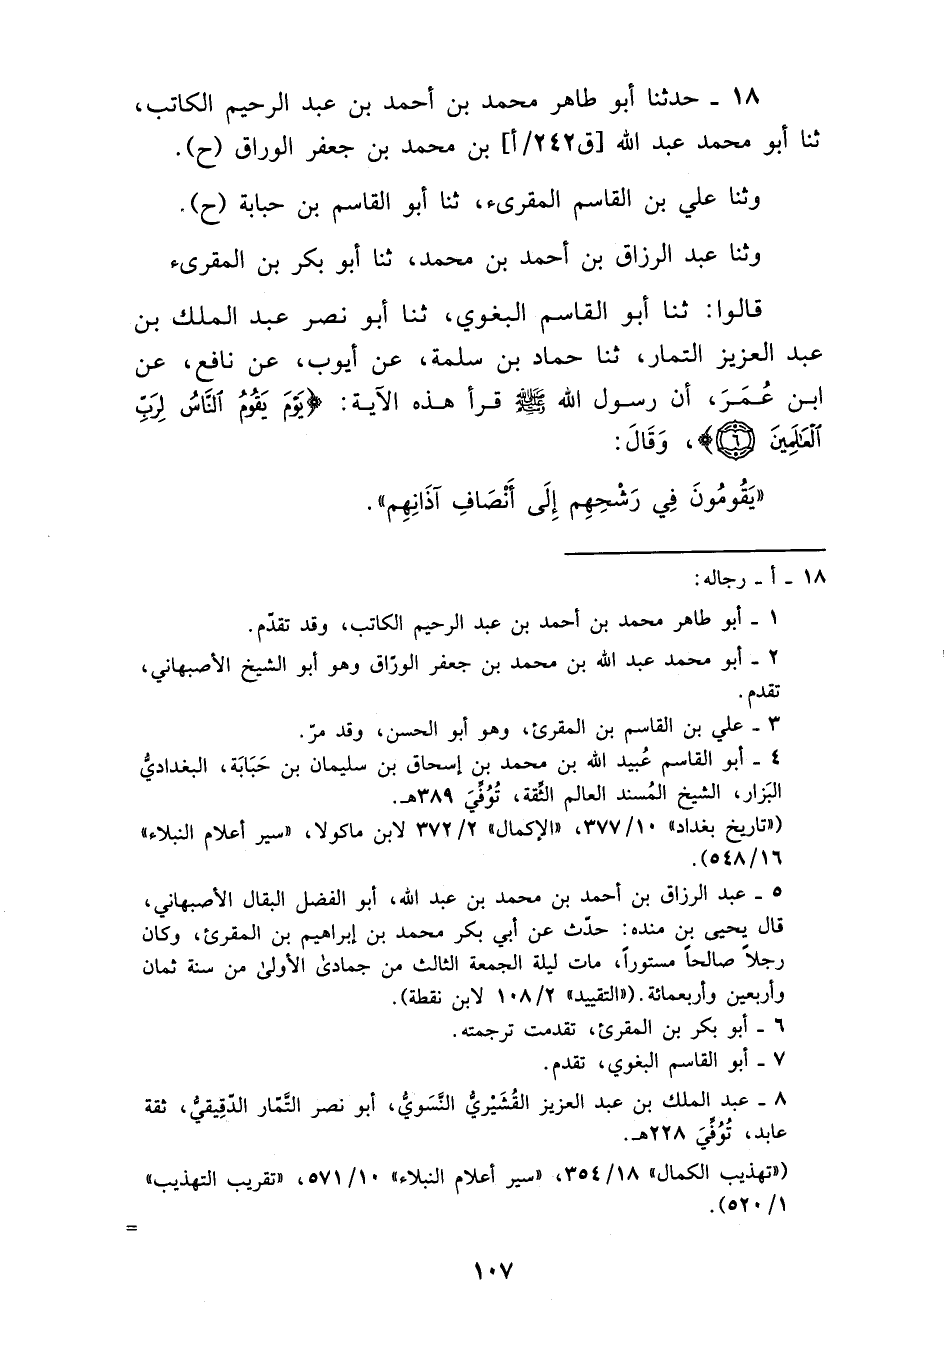 ١٨ ـ حدثنا أبو طاهر محمد بن أحمد بن عبد الرحيم الكاتب،
ثنا أبو محمد عبد الله [ق٢٤٢/أ] بن محمد بن جعفر الوراق (ح).
وثنا علي بن القاسم المقرىء، ثنا أبو القاسم بن حبابة (ح).
وثنا عبد الرزاق بن أحمد بن محمد، ثنا أبو بكر بن المقرىء
قالوا: ثنا أبو القاسم البغوي، ثنا أبو نصر عبد الملك بن
عبد العزيز التمار، ثنا حماد بن سلمة، عن أيوب، عن نافع، عن
ابن عُمَرَ، أن رسول الله ﷺ قرأ هذه الآية: ﴿يَوْمَ يَقُومُ ٱلنَّاسُ لِرَبِّ
ٱلْعَٰلَمِينَ ٦﴾، وَقَالَ:
«يَقُومُونَ فِي رَشْحِهِم إِلَى أَنْصَافِ آذَانِهِم».
١٨ ـ أ ـ رجاله:
١ ـ أبو طاهر محمد بن أحمد بن عبد الرحيم الكاتب، وقد تقدّم.
٢ ـ أبو محمد عبد الله بن محمد بن جعفر الورّاق وهو أبو الشيخ الأصبهاني،
تقدم.
٣ ـ علي بن القاسم بن المقرئ، وهو أبو الحسن، وقد مرّ.
٤ ـ أبو القاسم عُبيد الله بن محمد بن إسحاق بن سليمان بن حَبَابَة، البغداديُّ
البَزار، الشيخ المُسند العالم الثِّقة، تُوُفِّيَ ٣٨٩هـ.
(«تاريخ بغداد» ٣٧٧/١٠، «الإكمال» ٣٧٢/٢ لابن ماكولا، «سير أعلام النبلاء»
٥٤٨/١٦).
٥ ـ عبد الرزاق بن أحمد بن محمد بن عبد الله، أبو الفضل البقال الأصبهاني،
قال يحيى بن منده: حدّث عن أبي بكر محمد بن إبراهيم بن المقرئ، وكان
رجلاً صالحاً مستوراً، مات ليلة الجمعة الثالث من جمادىٰ الأولىٰ من سنة ثمان
وأربعين وأربعمائة. («التقييد» ١٠٨/٢ لابن نقطة).
٦ ـ أبو بكر بن المقرئ، تقدمت ترجمته.
٧ ـ أبو القاسم البغوي، تقدم.
٨ ـ عبد الملك بن عبد العزيز القُشَيْرِيُّ النَّسَوِيُّ، أبو نصر التَّمَّار الدّقِيقيُّ، ثقة
عابد، تُوُفِّيَ ٢٢٨هـ.
(«تهذيب الكمال» ٣٥٤/١٨، «سير أعلام النبلاء» ٥٧١/١٠، «تقريب التهذيب»
٥٢٠/١).
=
١٠٧